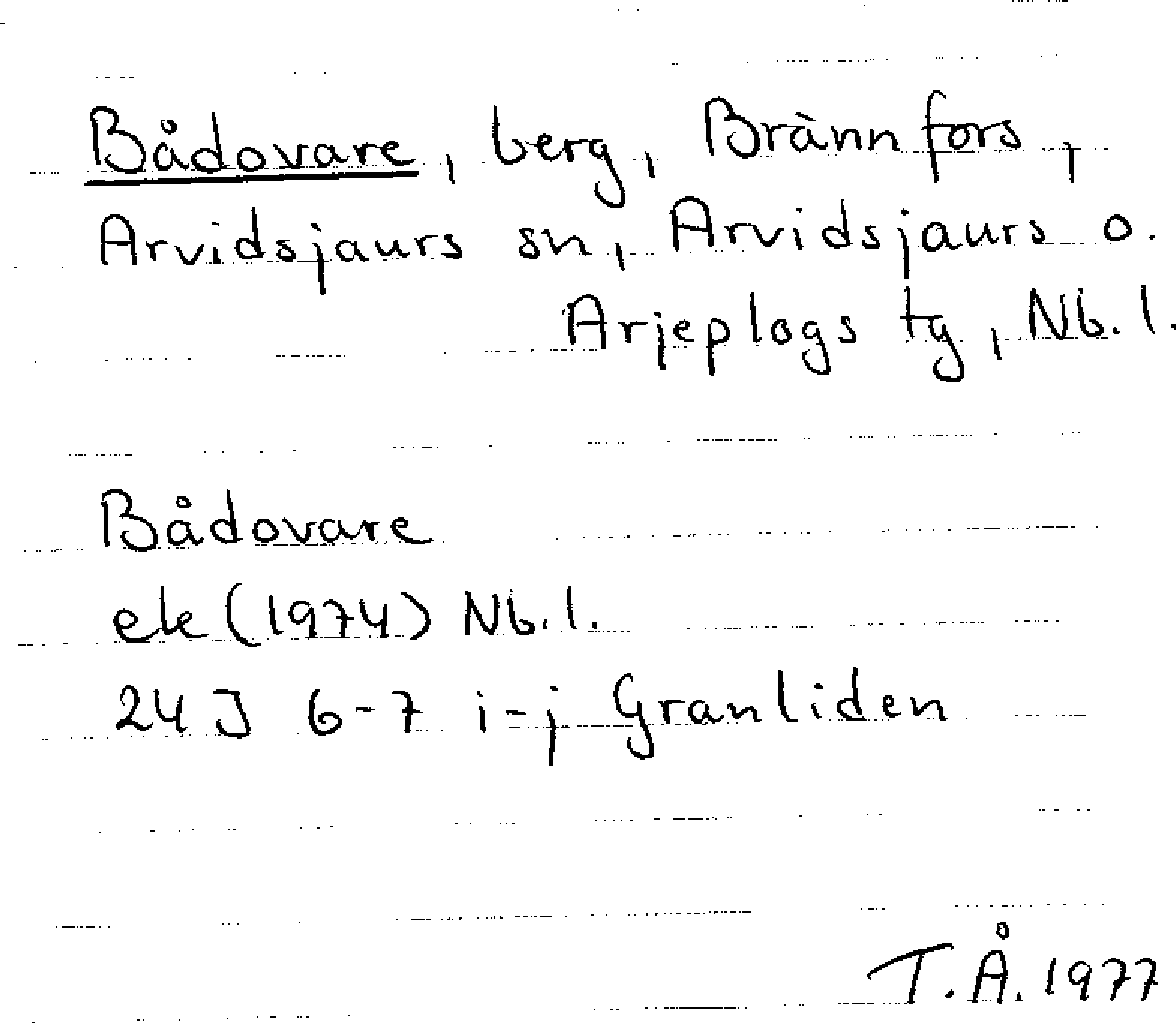 Bådovare, berg, Brännfors,
Arvidsjaurs sn, Arvidsjaurs o.
Arjeplogs tg, Nb.l.
Bådovare
ek (1974) Nb.l.
24J 6-7 i-j Granliden
T.Å. 1977